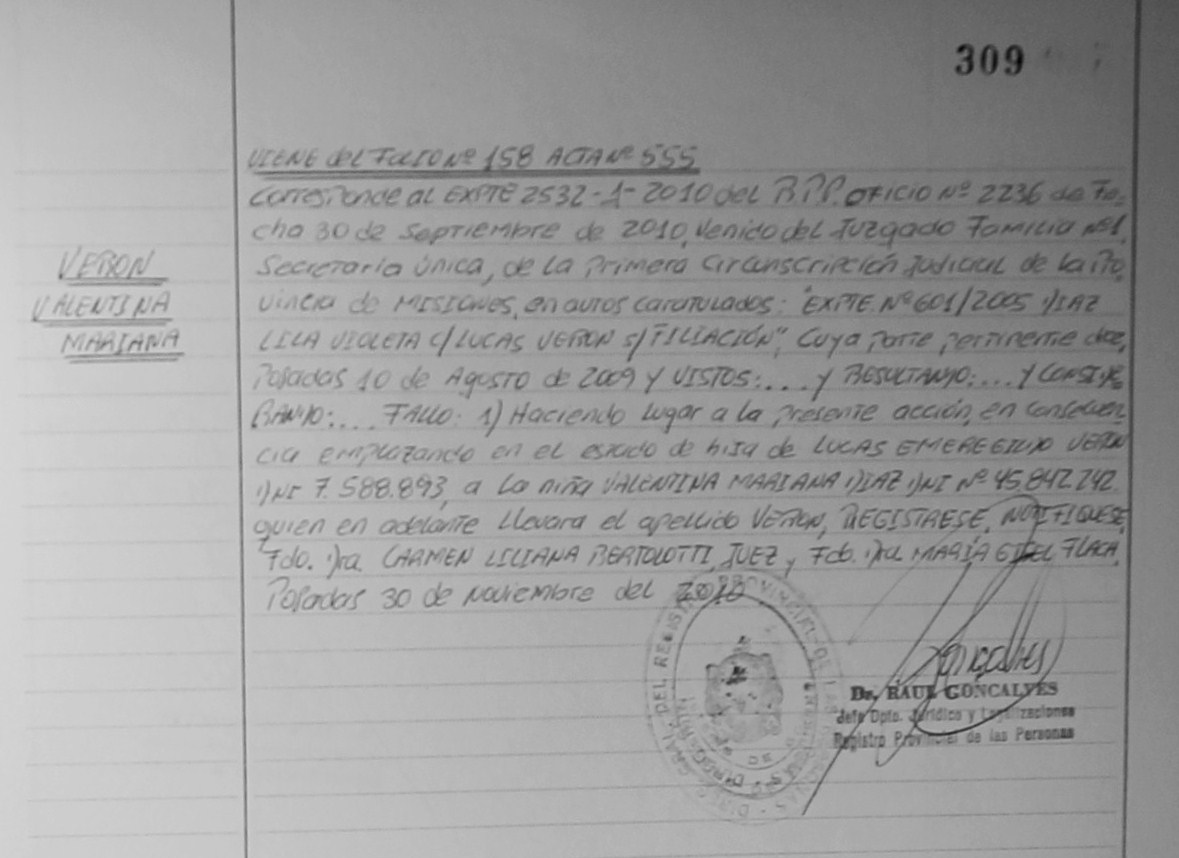 309
VIENE del FOLIO Nº 158 ACTA Nº 555
Corresponde al EXPTE 2532-1-2010 del R.P.P. OFICIO Nº 2236 de Fe-
cha 30 de Septiembre de 2010, Venido del Juzgado Familia Nº1,
Secretaria Única, de la Primera Circunscripción Judicial de la Pro-
vincia de MISIONES, en autos caratulados: "EXPTE. Nº 601/2005 DIAZ
LILA VIOLETA C/ LUCAS VERON S/ FILIACIÓN", Cuya parte pertinente dice,
Posadas 10 de Agosto de 2009 Y VISTOS:.... Y RESULTANDO:.... Y CONSIDE-
RANDO:.... FALLO: 1) Haciendo lugar a la presente acción, en consecuen-
cia emplazando en el estado de hija de LUCAS EMEREGILDO VERON
DNI 7.588.893, a la niña VALENTINA MARIANA DIAZ DNI Nº 45.842.742
quien en adelante llevara el apellido VERON, REGISTRESE, NOTIFIQUESE,
Fdo. Dra. CARMEN LILIANA BERTOLOTTI, JUEZ y Fdo. Dra. MARÍA FLACH,
Posadas 30 de Noviembre del 2010
VERON
VALENTINA
MARIANA
Goncalves
Dr. RAUL GONCALVES
Jefe Dpto. Jurídico y Legalizaciones
Registro Provincial de las Personas
DEL REGISTRO PROVINCIAL DE LAS